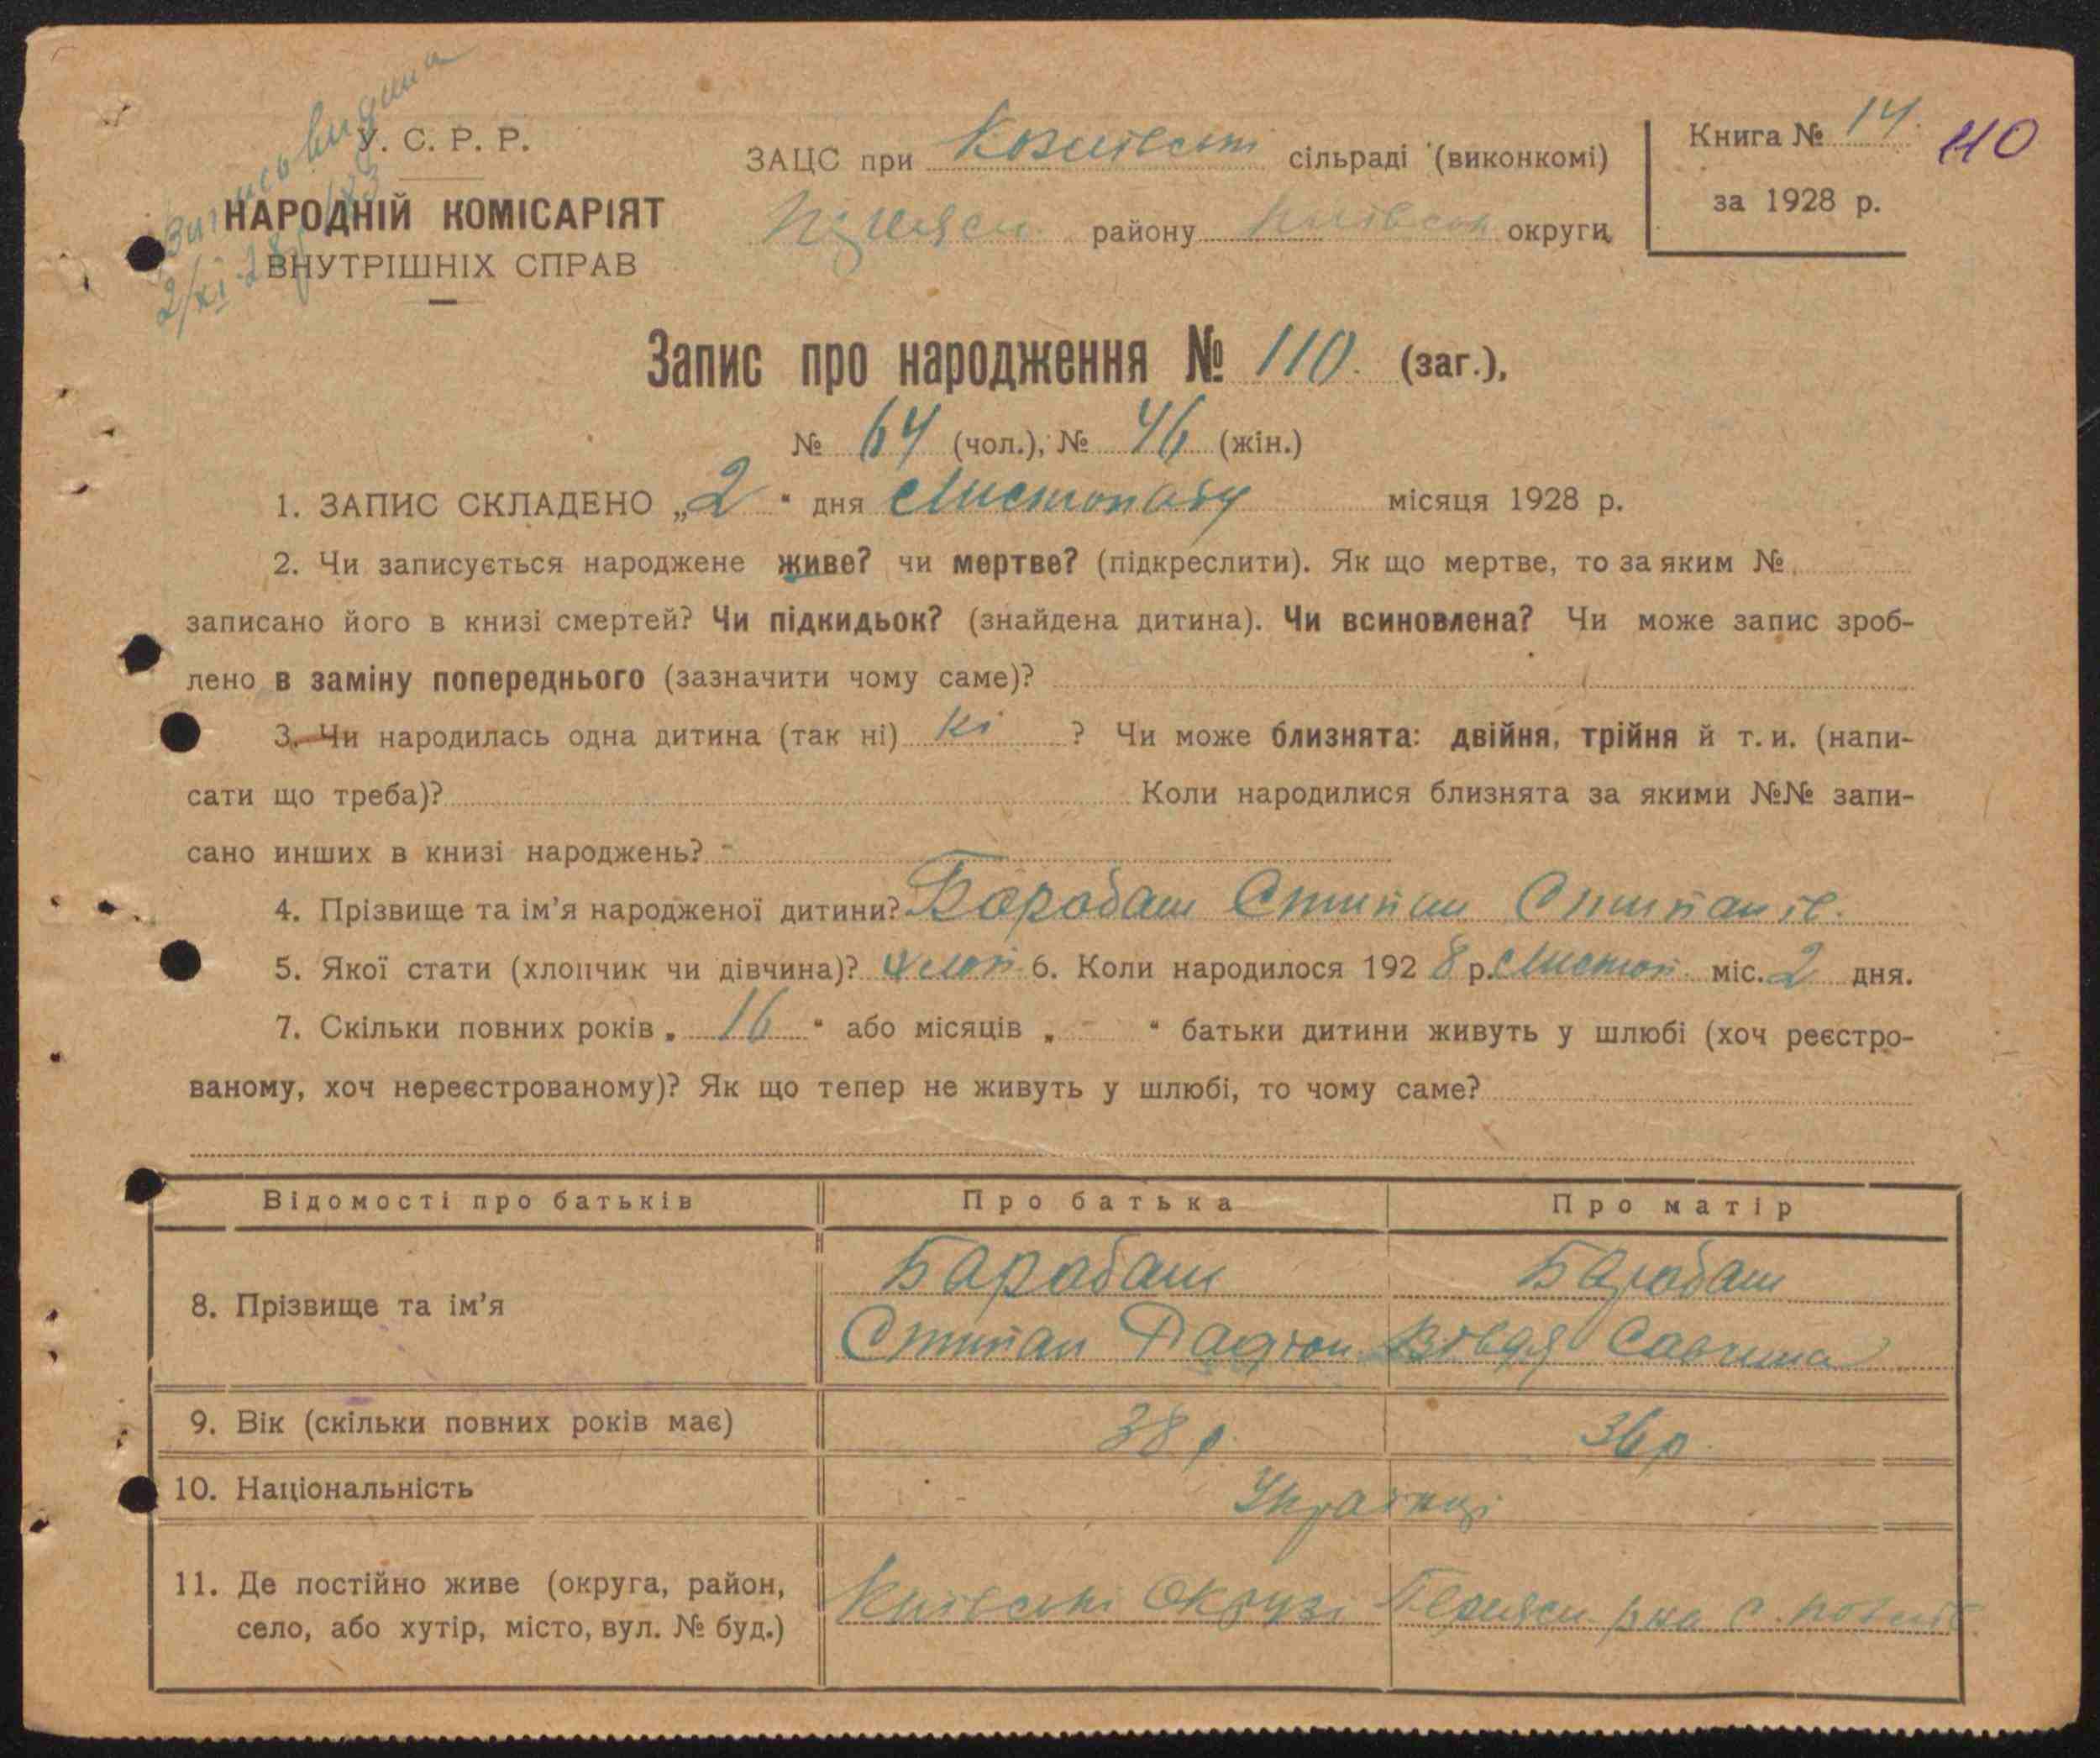 Випись видана
2/XI 28 р.
У. С. Р. Р.
НАРОДНІЙ КОМІСАРІЯТ
ВНУТРІШНІХ СПРАВ
ЗАЦС при сільраді (виконкомі)
району Київськ округи
Книга № 14.
110
за 1928 р.
Запис про народження № 110. (заг.),
№ 64 (чол.), № 46 (жін.)
1. ЗАПИС СКЛАДЕНО „2“ дня Листопаду місяця 1928 р.
2. Чи записується народжене живе? чи мертве? (підкреслити). Як що мертве, то за яким №
записано його в книзі смертей? Чи підкидьок? (знайдена дитина). Чи всиновлена? Чи може запис зроб-
лено в заміну попереднього (зазначити чому саме)?
3. Чи народилась одна дитина (так ні) ні ? Чи може близнята: двійня, трійня й т. и. (напи-
сати що треба)? Коли народилися близнята за якими №№ запи-
сано инших в книзі народжень? -
4. Прізвище та ім'я народженої дитини? Барабаш Стипан Стипанів.
5. Якої стати (хлопчик чи дівчина)? 6. Коли народилося 1928 р. Листоп. міс. 2 дня.
7. Скільки повних років „ 16 “ або місяців „ - “ батьки дитини живуть у шлюбі (хоч реєстро-
ваному, хоч нереєстрованому)? Як що тепер не живуть у шлюбі, то чому саме?
Відомості про батьків Про батька Про матір
8. Прізвище та ім'я
Барабаш Барабаш
Стипан Радіон Вівдя Савчина
9. Вік (скільки повних років має) 38 р. 36 р.
10. Національність Українці
11. Де постійно живе (округа, район,
село, або хутір, місто, вул. № буд.)
Київські Окрузі р на с.